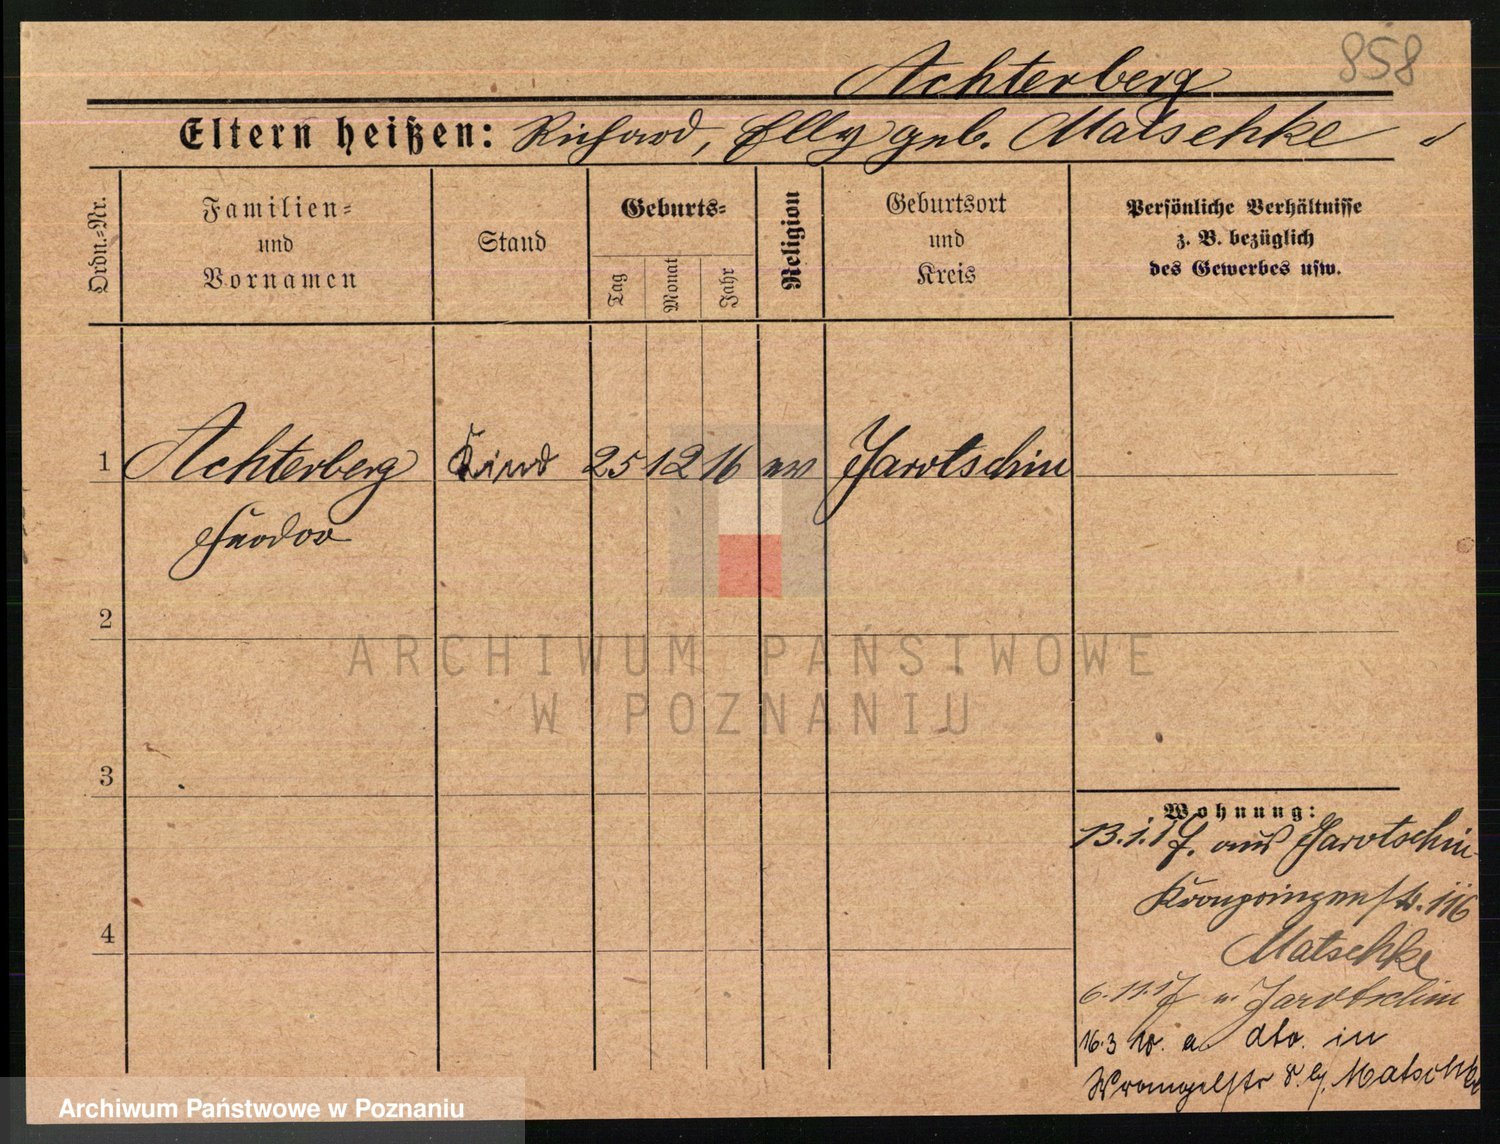 858
Achterberg
Eltern heißen: Richard, Elly geb. Matschke
Ordn.=Nr.
Familien=
und
Vornamen
Stand
Geburts=
Tag
Monat
Jahr
Religion
Geburtsort
und
Kreis
Persönliche Verhältnisse
z. B. bezüglich
des Gewerbes usw.
1 Achterberg Kind 25 12 16 ev Jarotschin
2
3
4
Wohnung:
13.1.17. aus Jarotschin
Kronprinzenstr. 116
Matschke
6.11.17 n. Jarotschin
16.3 a dto. in
Wrangelstr 8. b/. Matschke
ARCHIWUM PAŃSTWOWE
W POZNANIU
Archiwum Państwowe w Poznaniu